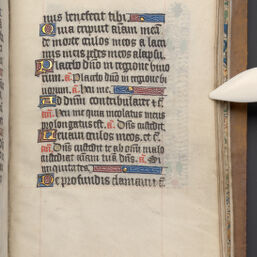 nus benefecit tibi
Quia eripuit aīam meā
de morte oculos meos a lacri
mis meis pedes meos a lapsu.
Placebo dn̄o in regione vivo
rum. an̄. Placebo dn̄o in regione vi
vorum. an̄. Heu me.
Ad dnūm cum tribularer et c̄.
an̄. Heu me quia incolatus meus
prolongatus est. an̄. Dn̄s custodit.
Levavi oculos meos. et c̄.
an̄. Dn̄s custodit te ab omni malo
custodiat aīam tuā dn̄s. an̄. Si
iniquitates
De profundis clamavi c̄.